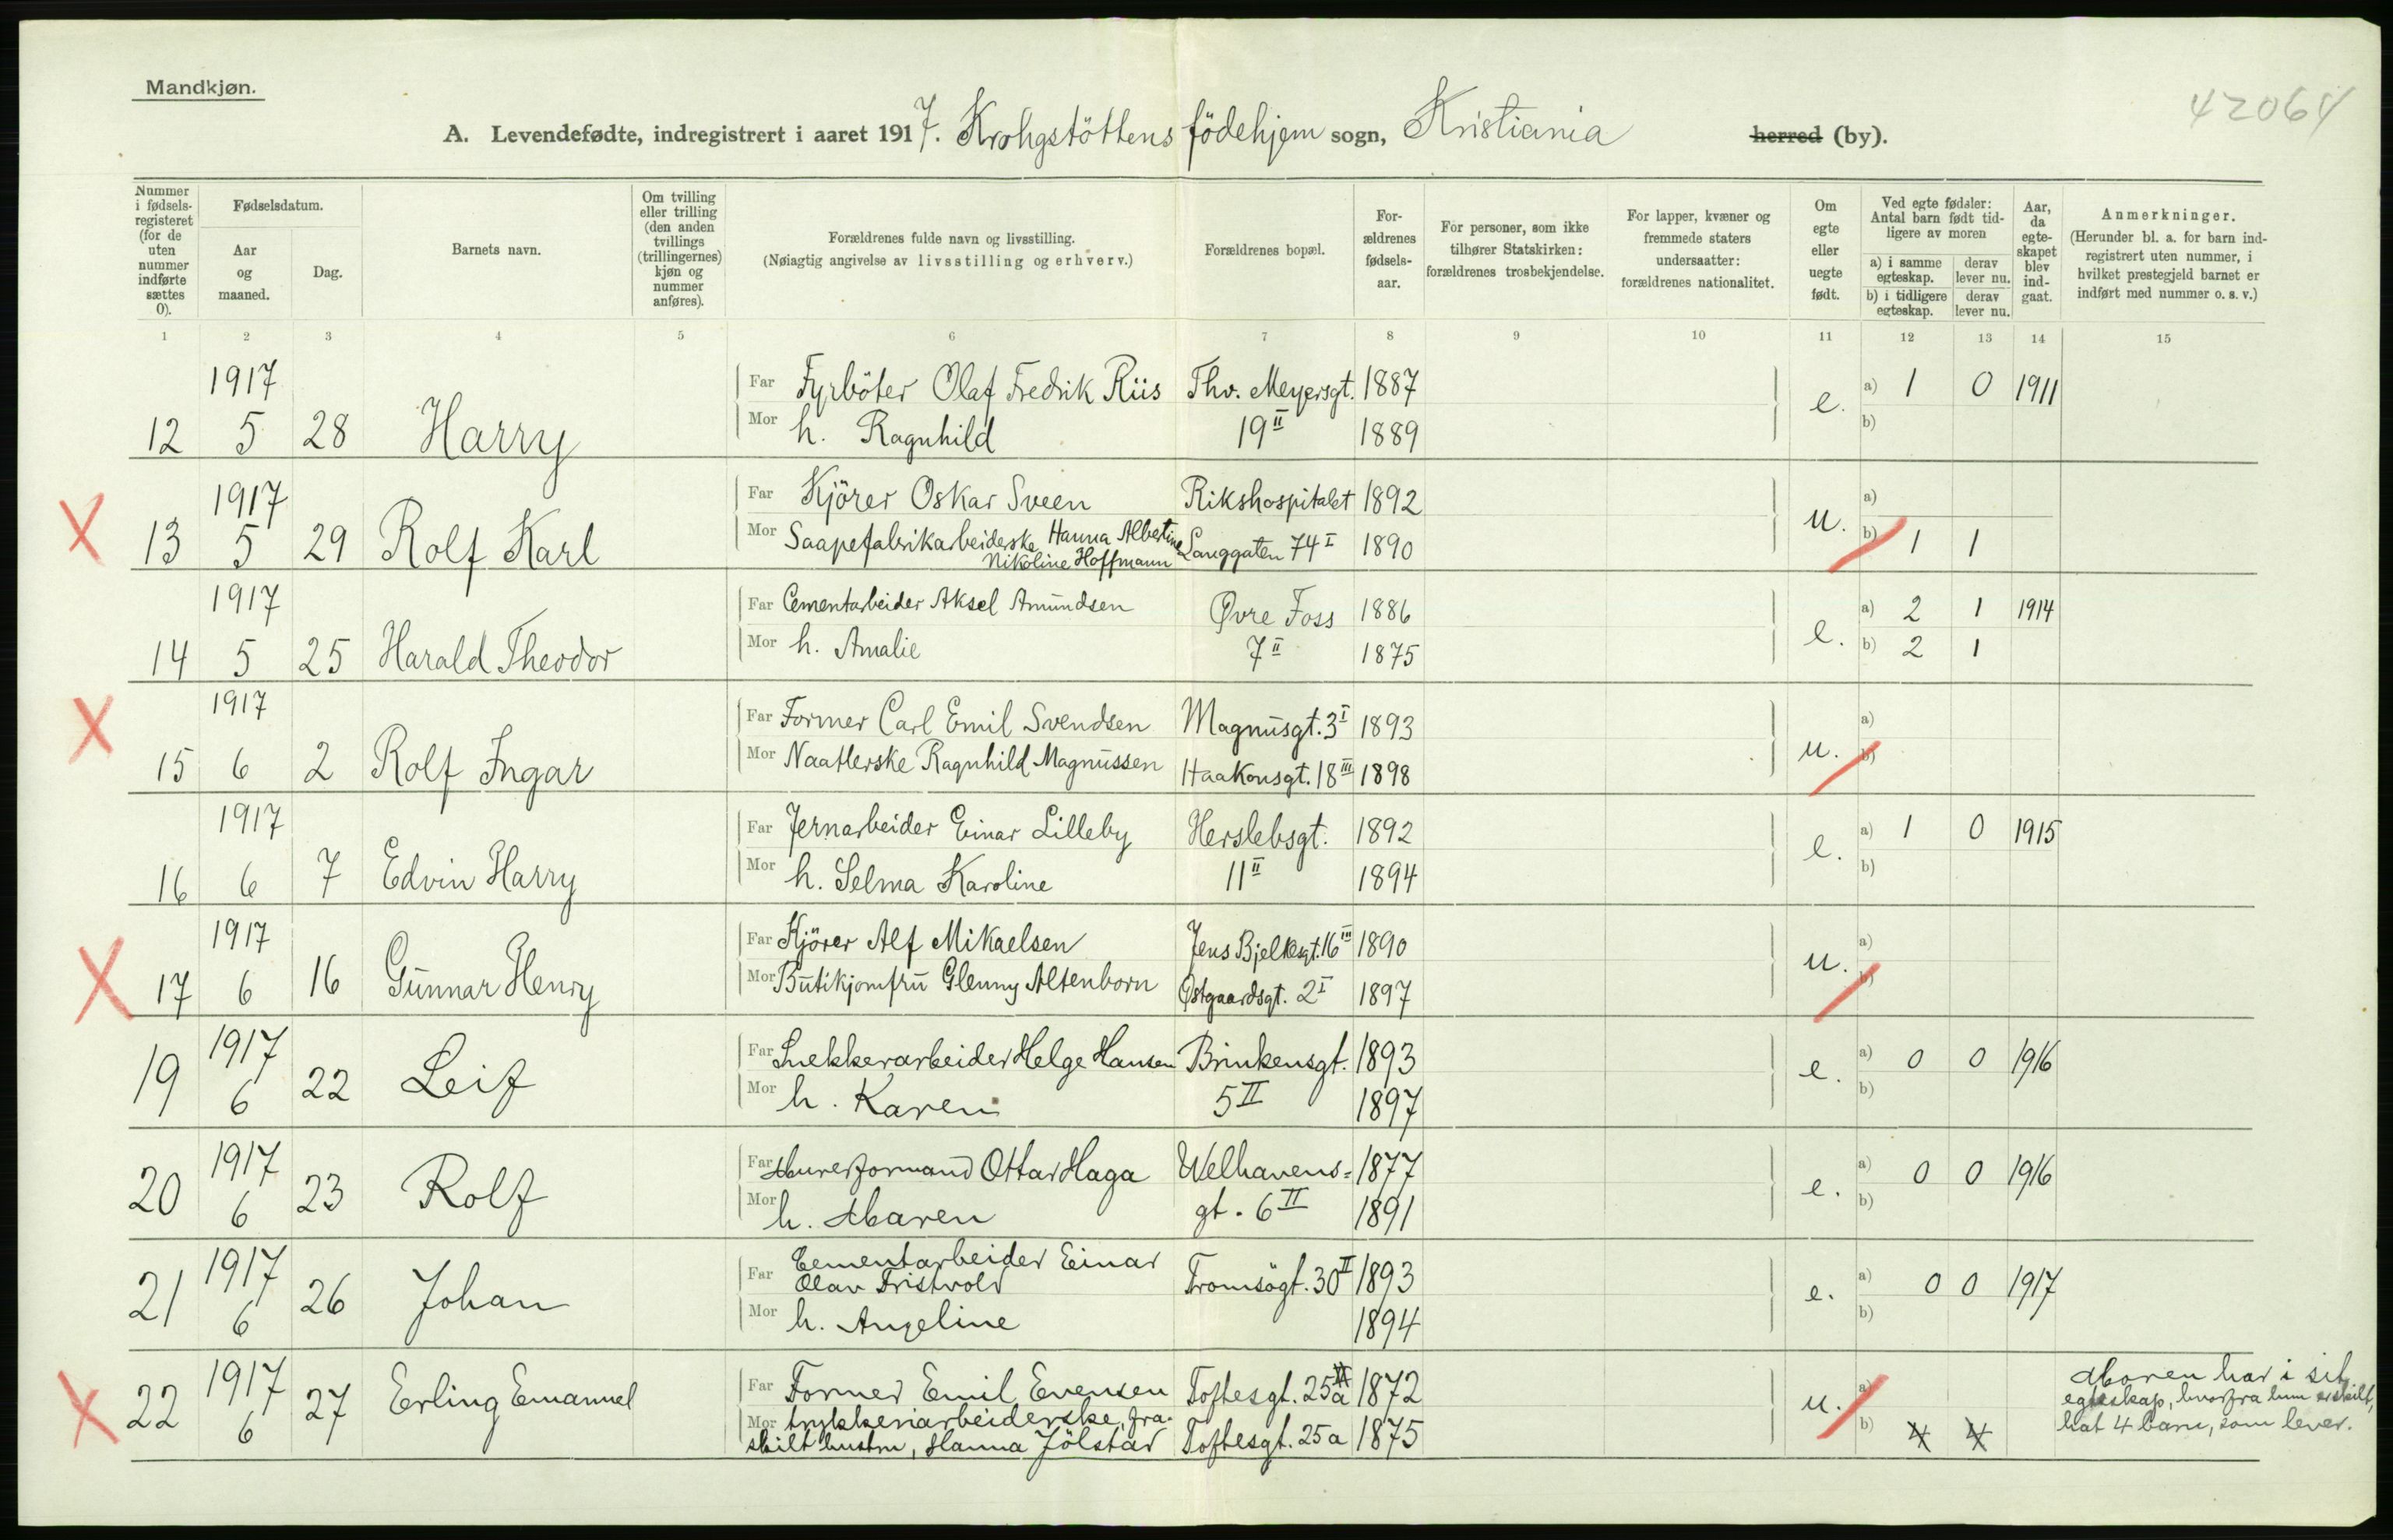 Mandkjøn.
42064
A. Levendefødte, indregistrert i aaret 1917. Krohgstöttens födehjem sogn, Kristiania herred (by).
Nummer i fødsels-registeret (for de uten nummer indførte sættes 0).
Fødselsdatum.
Aar og maaned.
Dag.
Barnets navn.
Om tvilling eller trilling (den anden tvillings (trillingernes) kjøn og nummer anføres).
Forældrenes fulde navn og livsstilling.
(Nøiagtig angivelse av livsstilling og erhverv.)
Forældrenes bopæl.
For-ældrenes fødsels-aar.
For personer, som ikke tilhører Statskirken: forældrenes trosbekjendelse.
For lapper, kvæner og fremmede staters undersaatter: forældrenes nationalitet.
Om egte eller uegte født.
Ved egte fødsler: Antal barn født tid-ligere av moren
a) i samme egteskap.
derav lever nu.
b) i tidligere egteskap.
derav lever nu.
Aar, da egte-skapet blev ind-gaat.
Anmerkninger.
(Herunder bl. a. for barn ind-registrert uten nummer, i hvilket prestegjeld barnet er indført med nummer o. s. v.)
1 2 3 4 5 6 7 8 9 10 11 12 13 14 15
1917 Far Fyrböter Olaf Fredrik Riis Thv. Meyersgt. 1887 e. a) 1 0 1911
12 5 28 Harry Mor h. Ragnhild 19 II 1889 b)
1917 Far Kjörer Oskar Sveen Rikshospitalet 1892 u. a)
X 13 5 29 Rolf Karl Mor Saapefabrikarbeiderske Hanna Albertine Nikoline Hoffmann Langgaten 74 I 1890 b) 1 1
1917 Far Cementarbeider Aksel Amundsen Øvre Foss 1886 e. a) 2 1 1914
14 5 25 Harald Theodor Mor h. Amalie 7 II 1875 b) 2 1
X 1917 Far Former Carl Emil Svendsen Magnusgt. 3 I 1893 u. a)
15 6 2 Rolf Ingar Mor Naatlerske Ragnhild Magnussen Haakonsgt. 18 III 1898 b)
1917 Far Jernarbeider Einar Lilleby Herslebsgt. 1892 e. a) 1 0 1915
16 6 7 Edvin Harry Mor h. Selma Karoline 11 II 1894 b)
1917 Far Kjörer Alf Mikaelsen Jens Bjelkesgt. 16 III 1890 u. a)
X 17 6 16 Gunnar Henry Mor Butikjomfru Glenny Altenborn Østgaardsgt. 2 I 1897 b)
1917 Far Snekkerarbeider Helge Hansen Brinkensgt. 1893 e. a) 0 0 1916
19 6 22 Leif Mor h. Karen 5 II 1897 b)
1917 Far Murerformand Ottar Haga Welhavens= 1877 e. a) 0 0 1916
20 6 23 Rolf Mor h. Maren gt. 6 II 1891 b)
1917 Far Cementarbeider Einar Olav Tristvold Tromsögt. 30 II 1893 e. a) 0 0 1917
21 6 26 Johan Mor h. Angeline 1894 b)
1917 Far Former Emil Evensen Toftesgt. 25a 1872 u. a) Moren har i sit
X 22 6 27 Erling Emanuel Mor trykkeriarbeiderske, fra- egteskap, hvorfra hun er skilt,
skilt hustru, Hanna Jölstad Toftesgt. 25a 1875 b) 4 4 hat 4 barn, som lever.